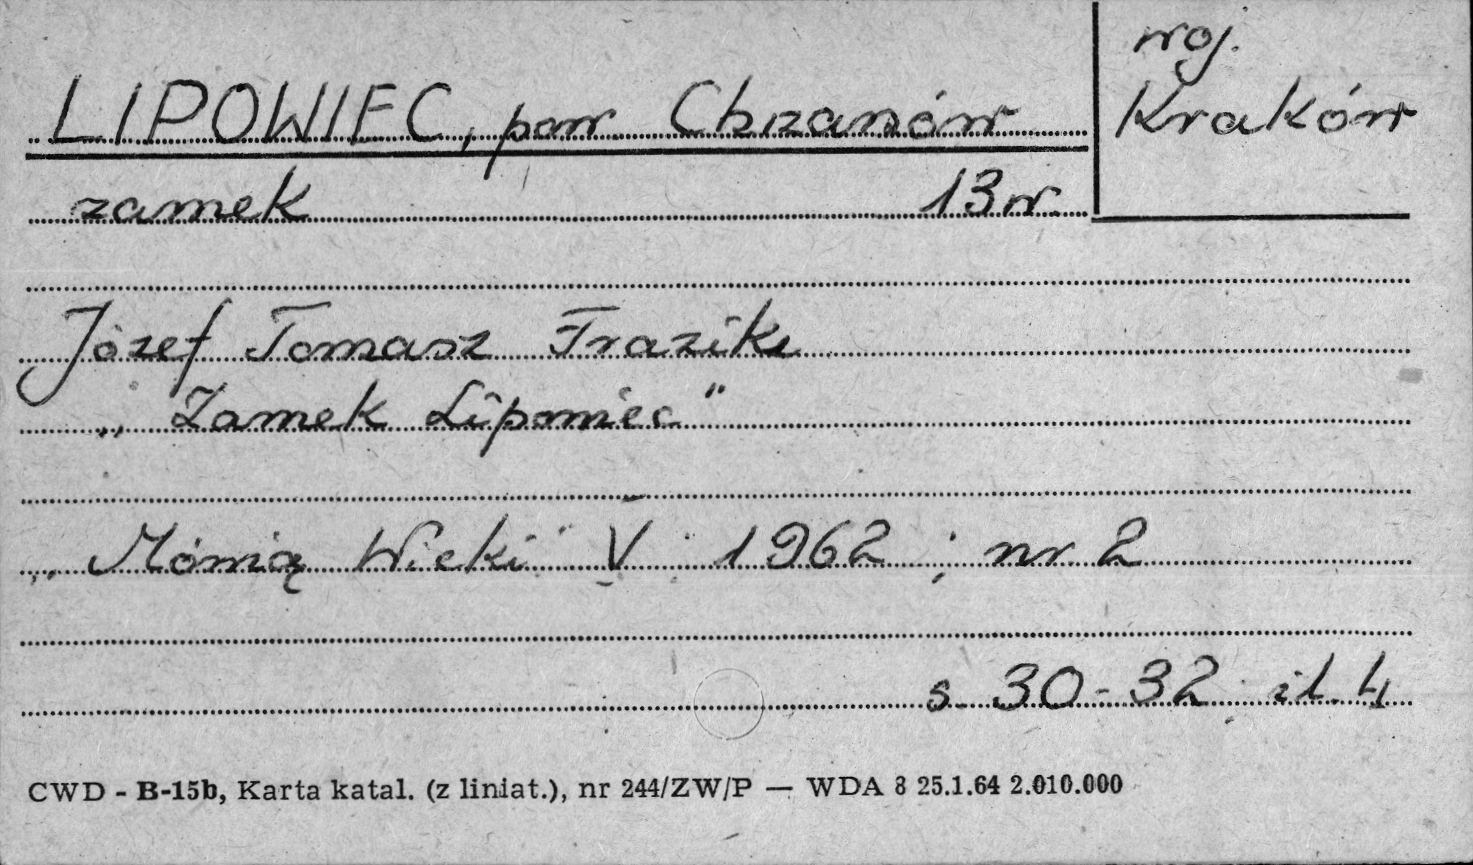 woj.
LIPOWIEC, pow. Chrzanów
Kraków
zamek 13 w.
Józef Tomasz Frazik
„Zamek Lipowiec”
„Mówią Wieki” V 1962; nr 2
s. 30-32 il. 4
CWD - B-15b, Karta katal. (z liniat.), nr 244/ZW/P — WDA 8 25.1.64 2.010.000